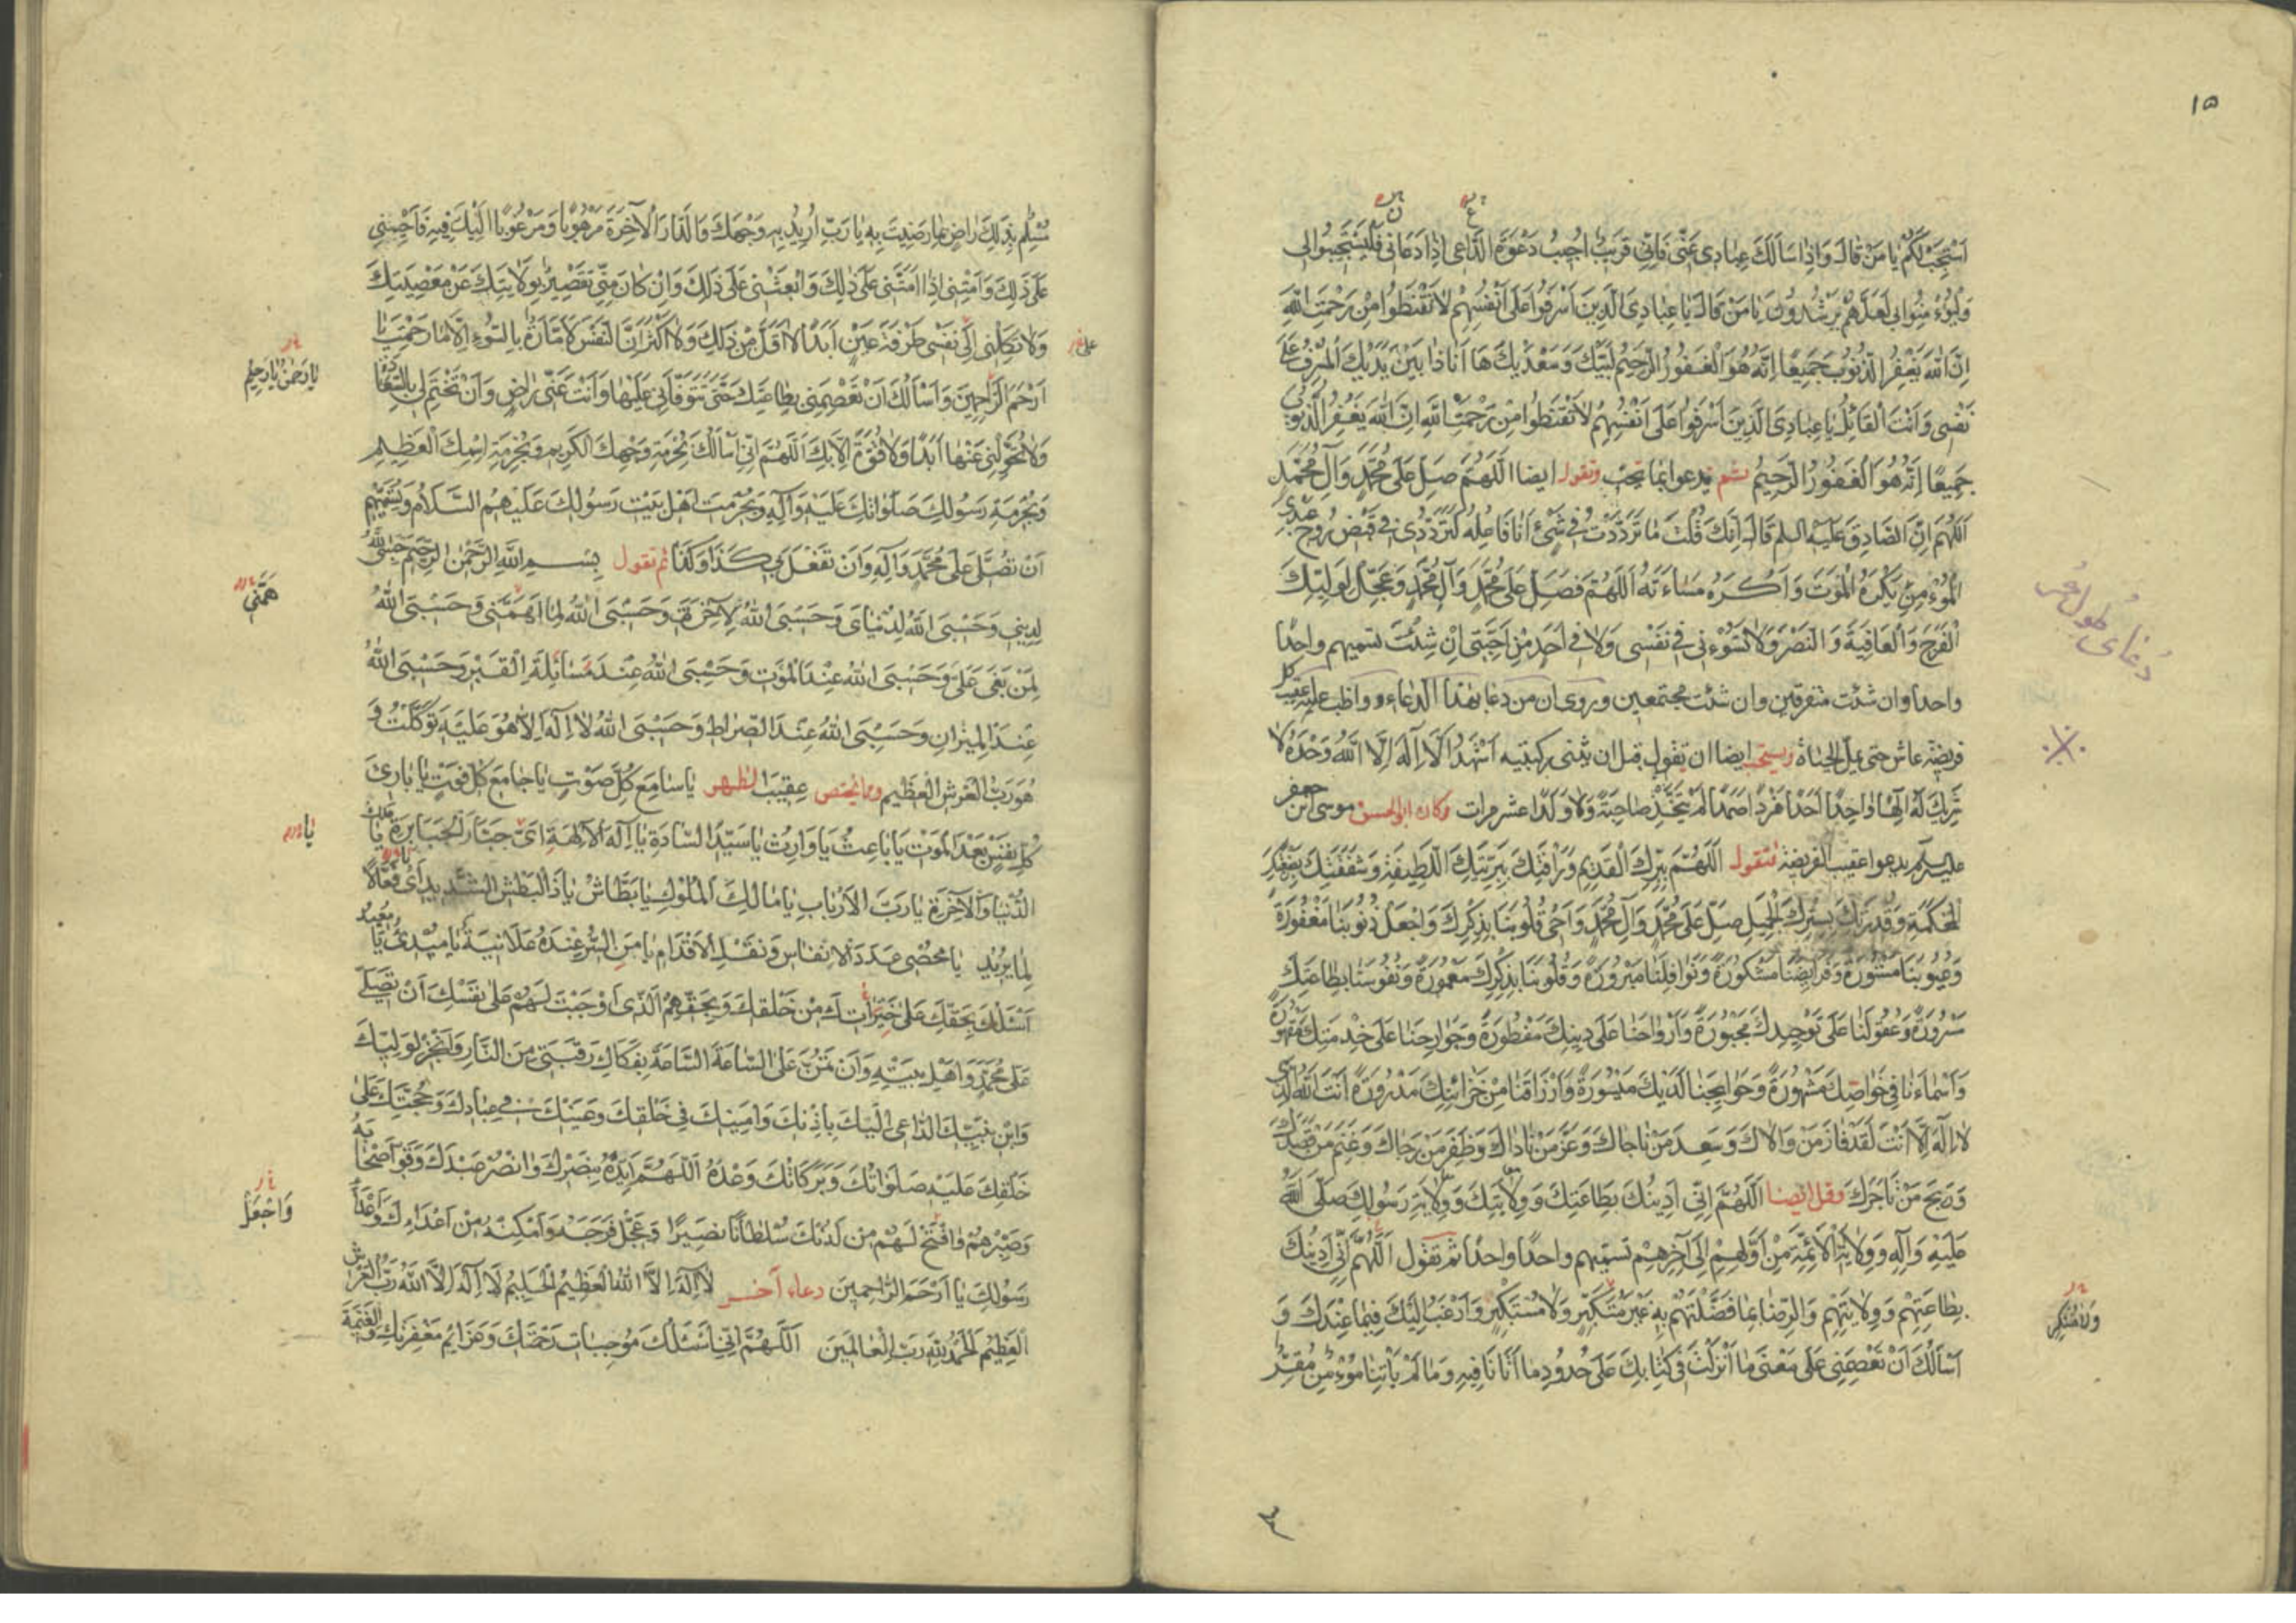 ١٥
اَسْتَجِبْ لَكُمْ يٰا مَنْ قٰالَ وَاِذٰا سَاَلَكَ عِبٰادى عَنّى فَاِنّى قَريبٌ اُجيبُ دَعْوَةَ الدّٰاعى اِذٰا دَعٰانى فَلْيَسْتَجيبُوا لى
وَلْيُؤْمِنُوا بى لَعَلَّهُمْ يَرْشُدُونَ يٰا مَنْ قٰالَ يٰا عِبٰادِىَ الَّذينَ اَسْرَفُوا عَلىٰ اَنْفُسِهِمْ لاٰ تَقْنَطُوا مِنْ رَحْمَتِ اللّٰهِ
اِنَّ اللّٰهَ يَغْفِرُ الذُّنُوبَ جَميعًا اِنَّهُ هُوَ الْغَفُورُ الرَّحيمُ لَبَّيْكَ وَسَعْدَيْكَ هٰا اَنَا ذٰا بَيْنَ يَدَيْكَ الْمُسْرِفُ عَلىٰ
نَفْسى وَاَنْتَ الْقٰائِلُ يٰا عِبٰادِىَ الَّذينَ اَسْرَفُوا عَلىٰ اَنْفُسِهِمْ لاٰ تَقْنَطُوا مِنْ رَحْمَتِ اللّٰهِ اِنَّ اللّٰهَ يَغْفِرُ الذُّنُوبَ
جَميعًا اِنَّهُ هُوَ الْغَفُورُ الرَّحيمُ ثم تدعوا بما تحب وتقول ايضا اَللّٰهُمَّ صَلِّ عَلىٰ مُحَمَّدٍ وَآلِ مُحَمَّدٍ
اَللّٰهُمَّ اِنَّ الصّٰادِقَ عَلَيْهِ السلم قٰالَ اِنَّكَ قُلْتَ مٰا تَرَدَّدْتُ فى شَىْءٍ اَنَا فٰاعِلُهُ كَتَرَدُّدى فى قَبْضِ رُوحِ عَبْدِىَ
الْمُؤْمِنِ يَكْرَهُ الْمَوْتَ وَاَكْرَهُ مَسٰاءَتَهُ اَللّٰهُمَّ فَصَلِّ عَلىٰ مُحَمَّدٍ وَآلِ مُحَمَّدٍ وَعَجِّلْ لِوَلِيِّكَ
الْفَرَجَ وَالْعٰافِيَةَ وَالنَّصْرَ وَلاٰ تَسُؤْنى فى نَفْسى وَلاٰ فى اَحَدٍ مِنْ اَحِبَّتى اِنْ شِئْتَ تسميهم واحدًا
واحدا وان شئت متفرقين وان شئت مجتمعين وروى ان من دعا بهذا الدعاء وواظب عليه عقيب كل
فريضة عاش حتى يمل الحياة ويستحب ايضا ان تقول قبل ان يثنى ركبتيه اَشْهَدُ اَنْ لاٰ اِلٰهَ اِلَّا اللّٰهُ وَحْدَهُ لاٰ
شَريكَ لَهُ اِلٰهًا وٰاحِدًا اَحَدًا فَرْدًا صَمَدًا لَمْ يَتَّخِذْ صٰاحِبَةً وَلاٰ وَلَدًا عشر مرات وكان ابو الحسن موسى ابن جعفر
عليه السلم يدعوا عقيب الفريضة فتقول اَللّٰهُمَّ بِبِرِّكَ الْقَديمِ وَرَأْفَتِكَ بِبَرِيَّتِكَ اللَّطيفَةِ وَشَفَقَتِكَ بِصَنْعَتِكَ
الْمُحْكَمَةِ وَقُدْرَتِكَ بِسِتْرِكَ الْجَميلِ صَلِّ عَلىٰ مُحَمَّدٍ وَآلِ مُحَمَّدٍ وَاَحْىِ قُلُوبَنٰا بِذِكْرِكَ وَاجْعَلْ ذُنُوبَنٰا مَغْفُورَةً
وَعُيُوبَنٰا مَسْتُورَةً وَفَرٰائِضَنٰا مَشْكُورَةً وَنَوٰافِلَنٰا مَبْرُورَةً وَقُلُوبَنٰا بِذِكْرِكَ مَعْمُورَةً وَنُفُوسَنٰا بِطٰاعَتِكَ
مَسْرُورَةً وَعُقُولَنٰا عَلىٰ تَوْحيدِكَ مَجْبُورَةً وَاَرْوٰاحَنٰا عَلىٰ دينِكَ مَفْطُورَةً وَجَوٰارِحَنٰا عَلىٰ خِدْمَتِكَ مَقْهُورَةً
وَاَسْمٰاءَنٰا فى خَوٰاصِّكَ مَشْهُورَةً وَحَوٰائِجَنٰا لَدَيْكَ مَيْسُورَةً وَاَرْزٰاقَنٰا مِنْ خَزٰائِنِكَ مَدْرُورَةً اَنْتَ اللّٰهُ الَّذى
لاٰ اِلٰهَ اِلّٰا اَنْتَ لَقَدْ فٰازَ مَنْ وٰالاٰكَ وَسَعِدَ مَنْ نٰاجٰاكَ وَعَزَّ مَنْ نٰادٰاكَ وَظَفِرَ مَنْ رَجٰاكَ وَغَنِمَ مَنْ قَصَدَكَ
وَرَبِحَ مَنْ تٰاجَرَكَ وقل ايضا اَللّٰهُمَّ اِنّى اَدينُكَ بِطٰاعَتِكَ وَوِلاٰيَتِكَ وَوِلاٰيَةِ رَسُولِكَ صَلَّى اللّٰهُ
عَلَيْهِ وَآلِهِ وَوِلاٰيَةِ الْاَئِمَّةِ مِنْ اَوَّلِهِمْ اِلىٰ آخِرِهِمْ تسميهم واحدًا واحدًا ثم تقول اَللّٰهُمَّ اِنّى اَدينُكَ
بِطٰاعَتِهِمْ وَوِلاٰيَتِهِمْ وَالرِّضٰا بِمٰا فَضَّلْتَهُمْ بِهِ غَيْرَ مُتَكَبِّرٍ وَلاٰ مُسْتَكْبِرٍ وَاَرْغَبُ اِلَيْكَ فيمٰا عِنْدَكَ وَ
اَسْاَلُكَ اَنْ تَعْصِمَنى عَلىٰ مَعْنىٰ مٰا اَنْزَلْتَ فى كِتٰابِكَ عَلىٰ حُدُودِ مٰا اَتٰانٰا فيهِ وَمٰا لَمْ يَأْتِنٰا مُؤْمِنٌ مُقِرٌّ
دُعاى طول عمر
مُسَلِّمٌ بِذٰلِكَ رٰاضٍ بِمٰا رَضيتَ بِهِ يٰا رَبِّ اُريدُ بِهِ وَجْهَكَ وَالدّٰارَ الْآخِرَةَ مَرْهُوبًا وَمَرْغُوبًا اِلَيْكَ فيهِ فَاَحْيِنى
عَلىٰ ذٰلِكَ وَاَمِتْنى اِذٰا اَمَتَّنى عَلىٰ ذٰلِكَ وَابْعَثْنى عَلىٰ ذٰلِكَ وَاِنْ كٰانَ مِنّى تَقْصيرٌ بِوِلاٰيَتِكَ عَنْ مَعْصِيَتِكَ
وَلاٰ تَكِلْنى اِلىٰ نَفْسى طَرْفَةَ عَيْنٍ اَبَدًا لاٰ اَقَلَّ مِنْ ذٰلِكَ وَلاٰ اَكْثَرَ اِنَّ النَّفْسَ لَاَمّٰارَةٌ بِالسُّوءِ اِلّٰا مٰا رَحِمْتَ يٰا
اَرْحَمَ الرّٰاحِمينَ وَاَسْاَلُكَ اَنْ تَعْصِمَنى بِطٰاعَتِكَ حَتّىٰ تَتَوَفّٰانى عَلَيْهٰا وَاَنْتَ عَنّى رٰاضٍ وَاَنْ تَخْتِمَ لى بِالسَّعٰادَةِ
وَلاٰ تُحَوِّلْنى عَنْهٰا اَبَدًا وَلاٰ قُوَّةَ اِلّٰا بِكَ اَللّٰهُمَّ اِنّى اَسْاَلُكَ بِحُرْمَةِ وَجْهِكَ الْكَريمِ وَبِحُرْمَةِ اِسْمِكَ الْعَظيمِ
وَبِحُرْمَةِ رَسُولِكَ صَلَوٰاتُكَ عَلَيْهِ وَآلِهِ وَبِحُرْمَتِ اَهْلِ بَيْتِ رَسُولِكَ عَلَيْهِمُ السَّلاٰمُ وَتُسَمّيهِمْ
اَنْ تُصَلِّىَ عَلىٰ مُحَمَّدٍ وَآلِهِ وَاَنْ تَفْعَلَ بى كَذٰا وَكَذٰا ثم تقول بِسْمِ اللّٰهِ الرَّحْمٰنِ الرَّحيمِ حَسْبِىَ اللّٰهُ
لِدينى وَحَسْبِىَ اللّٰهُ لِدُنْيٰاىَ وَحَسْبِىَ اللّٰهُ لِآخِرَتى وَحَسْبِىَ اللّٰهُ لِمٰا اَهَمَّنى وَحَسْبِىَ اللّٰهُ
لِمَنْ بَغىٰ عَلَىَّ وَحَسْبِىَ اللّٰهُ عِنْدَ الْمَوْتِ وَحَسْبِىَ اللّٰهُ عِنْدَ مَسٰائِلَةِ الْقَبْرِ وَحَسْبِىَ اللّٰهُ
عِنْدَ الْميزٰانِ وَحَسْبِىَ اللّٰهُ عِنْدَ الصِّرٰاطِ وَحَسْبِىَ اللّٰهُ لاٰ اِلٰهَ اِلّٰا هُوَ عَلَيْهِ تَوَكَّلْتُ وَ
هُوَ رَبُّ الْعَرْشِ الْعَظيمِ ومما يختص عقيب الظهر يٰا سٰامِعَ كُلِّ صَوْتٍ يٰا جٰامِعَ كُلِّ فَوْتٍ يٰا بٰارِئَ
كُلِّ نَفْسٍ بَعْدَ الْمَوْتِ يٰا بٰاعِثُ يٰا وٰارِثُ يٰا سَيِّدَ السّٰادَةِ يٰا اِلٰهَ الْآلِهَةِ اى جَبّٰارَ الْجَبٰابِرَةِ يٰا مَلِكَ
الدُّنْيٰا وَالْآخِرَةِ يٰا رَبَّ الْاَرْبٰابِ يٰا مٰالِكَ الْمُلُوكِ يٰا بَطّٰاشُ يٰا ذَا الْبَطْشِ الشَّديدِ اى فَعّٰالًا
لِمٰا يُريدُ يٰا مُحْصِىَ عَدَدِ الْاَنْفٰاسِ وَنَقْلِ الْاَقْدٰامِ يٰا مَنِ السِّرُّ عِنْدَهُ عَلاٰنِيَةٌ يٰا مُبْدِئُ يٰا مُعيدُ
اَسْئَلُكَ بِحَقِّكَ عَلىٰ خِيَرَتِكَ مِنْ خَلْقِكَ وَبِحَقِّهِمُ الَّذى اَوْجَبْتَ لَهُمْ عَلىٰ نَفْسِكَ اَنْ تُصَلِّىَ
عَلىٰ مُحَمَّدٍ وَاَهْلِ بَيْتِهِ وَاَنْ تَمُنَّ عَلَىَّ السّٰاعَةَ السّٰاعَةَ بِفَكٰاكِ رَقَبَتى مِنَ النّٰارِ وَاَنْجِزْ لِوَلِيِّكَ
وَابْنِ نَبِيِّكَ الدّٰاعى اِلَيْكَ بِاِذْنِكَ وَاَمينِكَ فى خَلْقِكَ وَعَيْنِكَ فى عِبٰادِكَ وَحُجَّتِكَ عَلىٰ
خَلْقِكَ عَلَيْهِ صَلَوٰاتُكَ وَبَرَكٰاتُكَ وَعْدَهُ اَللّٰهُمَّ اَيِّدْهُ بِنَصْرِكَ وَانْصُرْ عَبْدَكَ وَقَوِّ اَصْحٰابَهُ
وَصَبِّرْهُمْ وَافْتَحْ لَهُمْ مِنْ لَدُنْكَ سُلْطٰانًا نَصيرًا وَعَجِّلْ فَرَجَهُ وَاَمْكِنْهُ مِنْ اَعْدٰائِكَ وَاَعْدٰاءِ
رَسُولِكَ يٰا اَرْحَمَ الرّٰاحِمينَ دعاء آخر لاٰ اِلٰهَ اِلَّا اللّٰهُ الْعَظيمُ الْحَليمُ لاٰ اِلٰهَ اِلَّا اللّٰهُ رَبُّ الْعَرْشِ
الْعَظيمِ اَلْحَمْدُ لِلّٰهِ رَبِّ الْعٰالَمينَ اَللّٰهُمَّ اِنّى اَسْئَلُكَ مُوجِبٰاتِ رَحْمَتِكَ وَعَزٰائِمَ مَغْفِرَتِكَ وَالْغَنيمَةَ
يٰا رَحْمٰنُ يٰا رَحيمُ
هَمَّنى
يٰا
وَاجْعَلْ